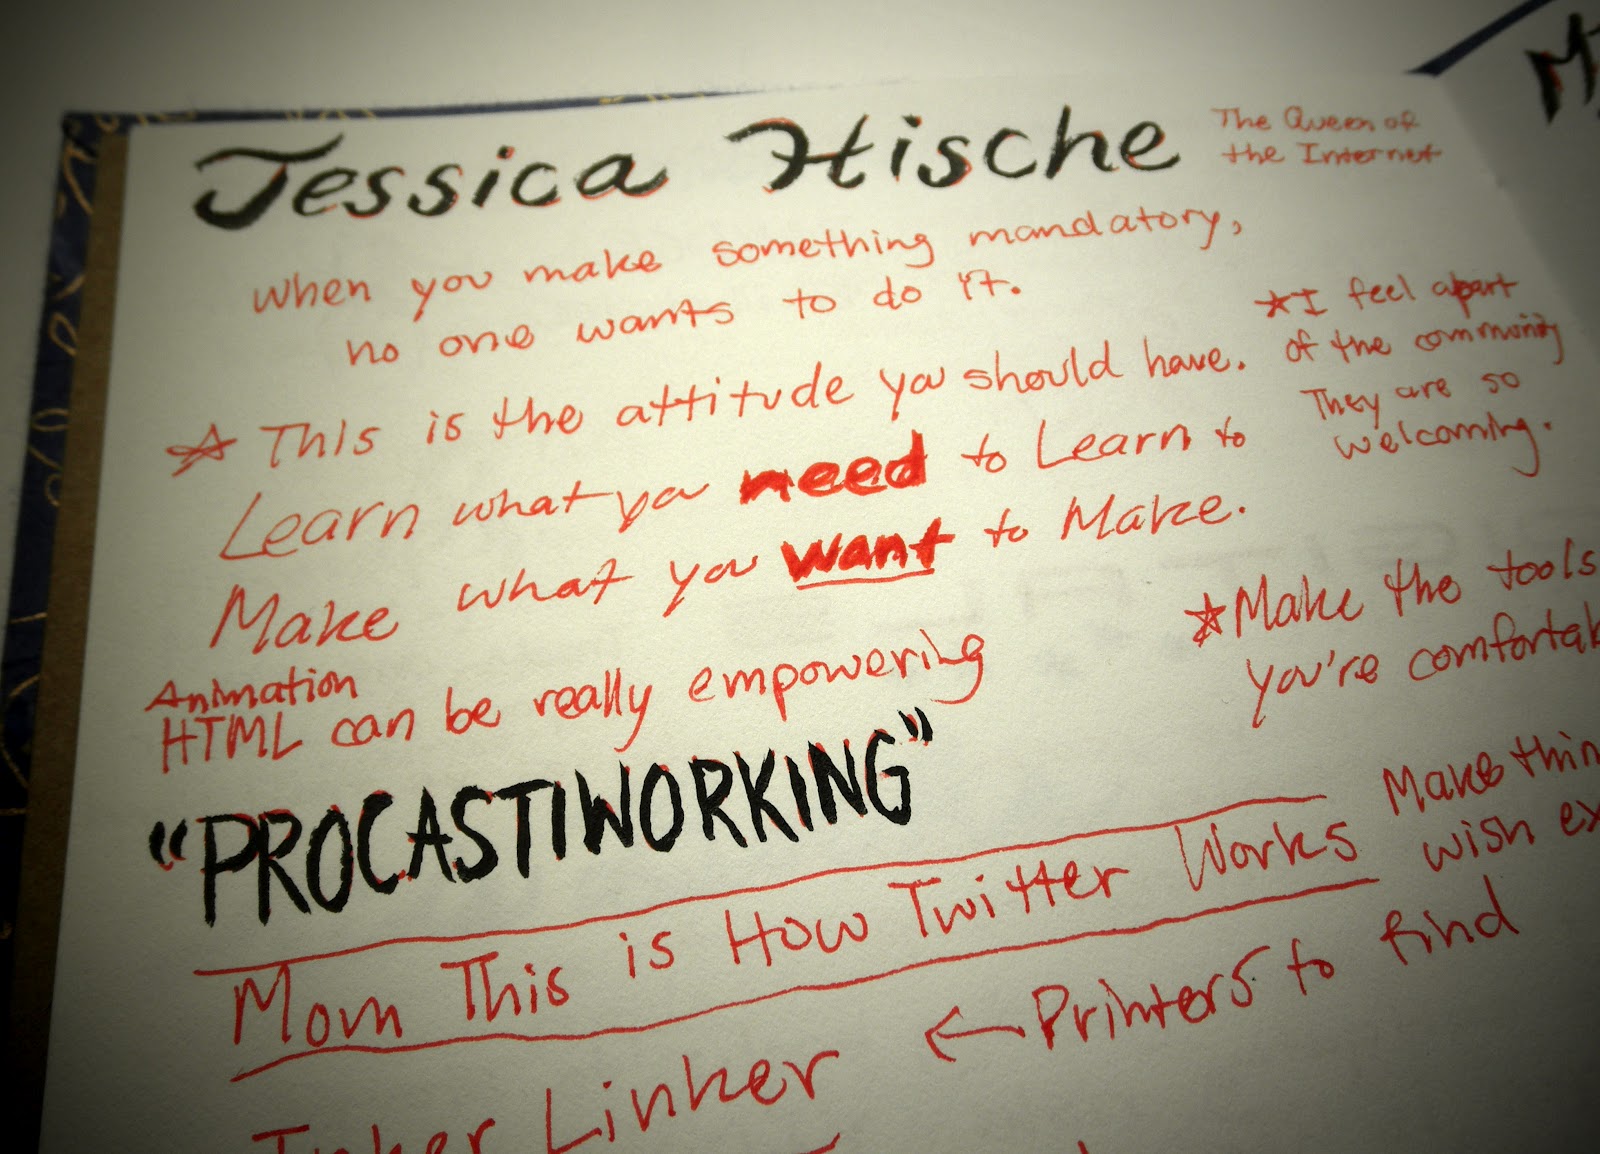 Jessica Hische
The Queen of
the Internet
when you make something mandatory,
no one wants to do it.
☆ This is the attitude you should have.
Learn what you need to Learn to
Make what you want to Make.
★ I feel apart
of the community
They are so
welcoming.
Animation
HTML can be really empowering
☆ Make the tools
you're
"PROCASTIWORKING"
Mom This is How Twitter Works
Make
wish
Inker Linker ← Printers to find